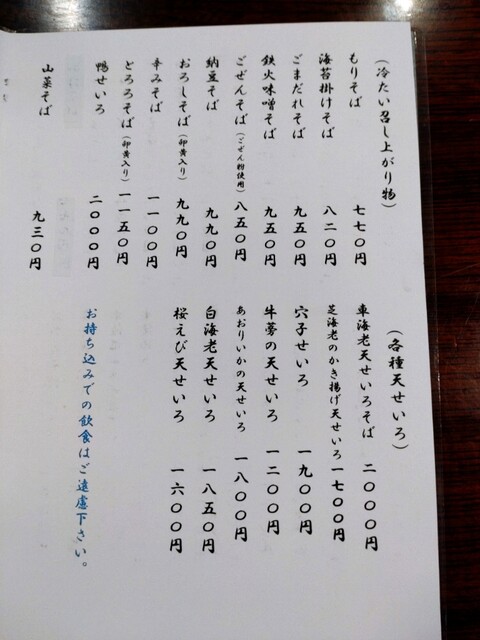 (冷たい召し上がり物)
もりそば 七七〇円
海苔掛けそば 八二〇円
ごまだれそば 九五〇円
鉄火味噌そば 九五〇円
ごぜんそば(ごぜん粉使用) 八五〇円
納豆そば 九九〇円
おろしそば(卵黄入り) 九九〇円
辛みそば 一一〇〇円
とろろそば(卵黄入り) 一一五〇円
鴨せいろ 二〇〇〇円
山菜そば 九三〇円
(各種天せいろ)
車海老天せいろそば 二〇〇〇円
芝海老のかき揚げ天せいろ 一七〇〇円
穴子せいろ 一九〇〇円
牛蒡の天せいろ 一二〇〇円
あおりいかの天せいろ 一八〇〇円
白海老天せいろ 一八五〇円
桜えび天せいろ 一六〇〇円
お持ち込みでの飲食はご遠慮下さい。